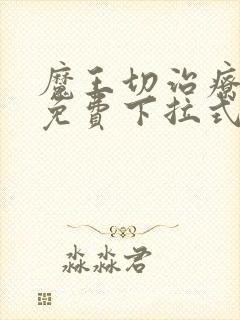 魔王切治療
免費下拉式
淼淼君